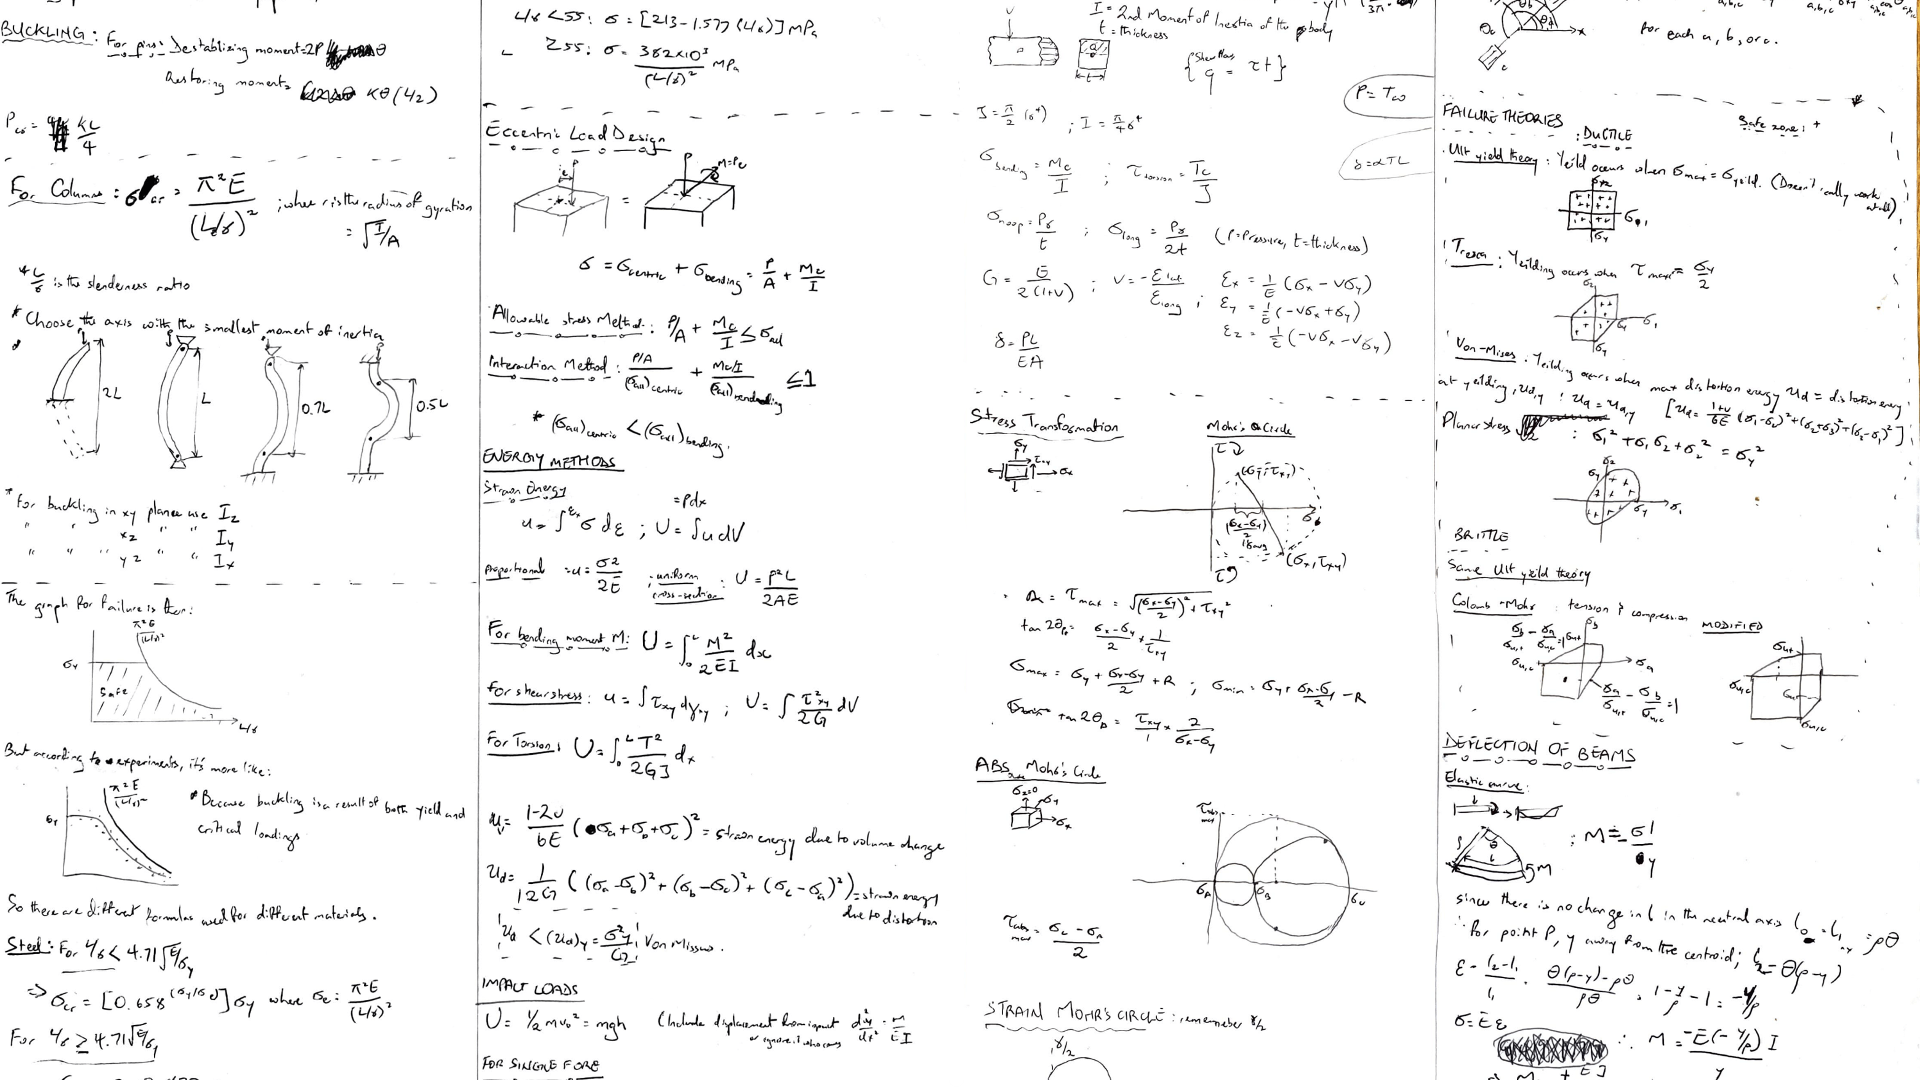 BUCKLING: For pins: Destabilizing moment=2P θ
Restoring moment= Kθ(L/2)
Pcr = KL/4
For Columns: σcr = π²E/(Le/r)² ; where r is the radius of gyration = √I/A
* L/r is the slenderness ratio
* Choose the axis with the smallest moment of inertia
2L L 0.7L 0.5L
* For buckling in xy plane use Iz
" " " xz " " Iy
" " " yz " " Ix
The graph for failure is then:
π²E/(L/r)²
σy
Safe
L/r
But according to experiments, it's more like:
π²E/(L/r)²
σy
* Because buckling is a result of both yield and
critical loadings
So there are different formulas used for different materials.
Steel: For L/r < 4.71√E/σy
=> σcr = [0.658^(σy/σe)]σy where σe = π²E/(L/r)²
For L/r ≥ 4.71√E/σy
L/r <55: σ = [213-1.577(L/r)] MPa
≥55: σ = 382×10³/(L/r)² MPa
Eccentric Load Design
P e = P M=Pe
σ = σcentric + σbending = P/A + Mc/I
Allowable stress Method: P/A + Mc/I ≤ σall
Interaction Method: (P/A)/(σall)centric + (Mc/I)/(σall)bending ≤1
* (σall)centric < (σall)bending.
ENERGY METHODS
Strain Energy
=Pdx
u = ∫^εx σ dε ; U = ∫u dV
proportional =u= σ²/2E ; uniform cross-section: U = P²L/2AE
For bending moment M: U = ∫₀^L M²/2EI dx
For shear stress: u = ∫τxy dγxy ; U = ∫ τ²xy/2G dV
For Torsion: U = ∫₀^L T²/2GJ dx
uv = 1-2ν/6E (σa+σb+σc)² = strain energy due to volume change
Ud = 1/12G ((σa-σb)²+(σb-σc)²+(σc-σa)²) = strain energy
due to distortion
Ud < (Ud)y = σ²y/6G Von Missus.
IMPACT LOADS
U = 1/2 mv₀² = mgh (Include displacement from input or ignore it who cares d²y/dx² = M/EI
FOR SINGLE FORE
I = 2nd Moment of Inertia of the body
t = thickness
{Shear flow q = τt}
P = Tω
J = π/2 (r⁴) ; I = π/4 r⁴
δ=αTL
σbending = Mc/I ; τtorsion = Tc/J
σhoop = Pr/t ; σlong = Pr/2t (P=Pressure, t=thickness)
G = E/2(1+ν) ; ν = -εlat/εlong ; εx = 1/E (σx - νσy)
εy = 1/E (-νσx + σy)
εz = 1/E (-νσx - νσy)
δ = PL/EA
Stress Transformation Mohr's Circle
σy τxy σx
τ
(σy, τxy)
(σx-σy)/2
σavg
(σx, τxy)
τ
R = τmax = √((σx-σy)/2)² + τxy²
tan 2θs = σx-σy/2 * 1/τxy
σmax = σy + σx-σy/2 + R ; σmin = σy + σx-σy/2 - R
tan 2θp = τxy/1 × 2/σx-σy
ABS Mohr's Circle
σz=0 σy σx
τabs max
σA σB
τabs max = σc - σa/2
STRAIN MOHR'S CIRCLE: remember γ/2
γ/2
for each a, b, or c.
FAILURE THEORIES
: DUCTILE
Safe zone: +
Ult yield theory: Yield occurs when σmax = σyield. (Doesn't really work at all)
Tresca: Yeilding occurs when τmax = σy/2
Von-Mises: Yeilding occurs when max distortion energy Ud = distortion energy
at yeilding, Ud,y : Ud = Ud,y [Ud = 1+ν/6E (σ1-σ2)²+(σ2-σ3)²+(σ3-σ1)²]
Planar stress : σ1² + σ1σ2 + σ2² = σy²
BRITTLE
Same Ult yield theory
Colomb-Mohr : tension & compression MODIFIED
σb/σu,t - σa/σu,c = 1
σa/σu,t - σb/σu,c = 1
DEFLECTION OF BEAMS
Elastic curve:
; M = σI/y
since there is no change in l in the neutral axis l₀ = l₁ = ρθ
∴ for point P, y away from the centroid; l₂ = θ(ρ-y)
ε = l₂-l₁/l₁ = θ(ρ-y)-ρθ/ρθ = 1-y/ρ-1 = -y/ρ
σ=Eε
∴ M = -E(-y/ρ) I/y